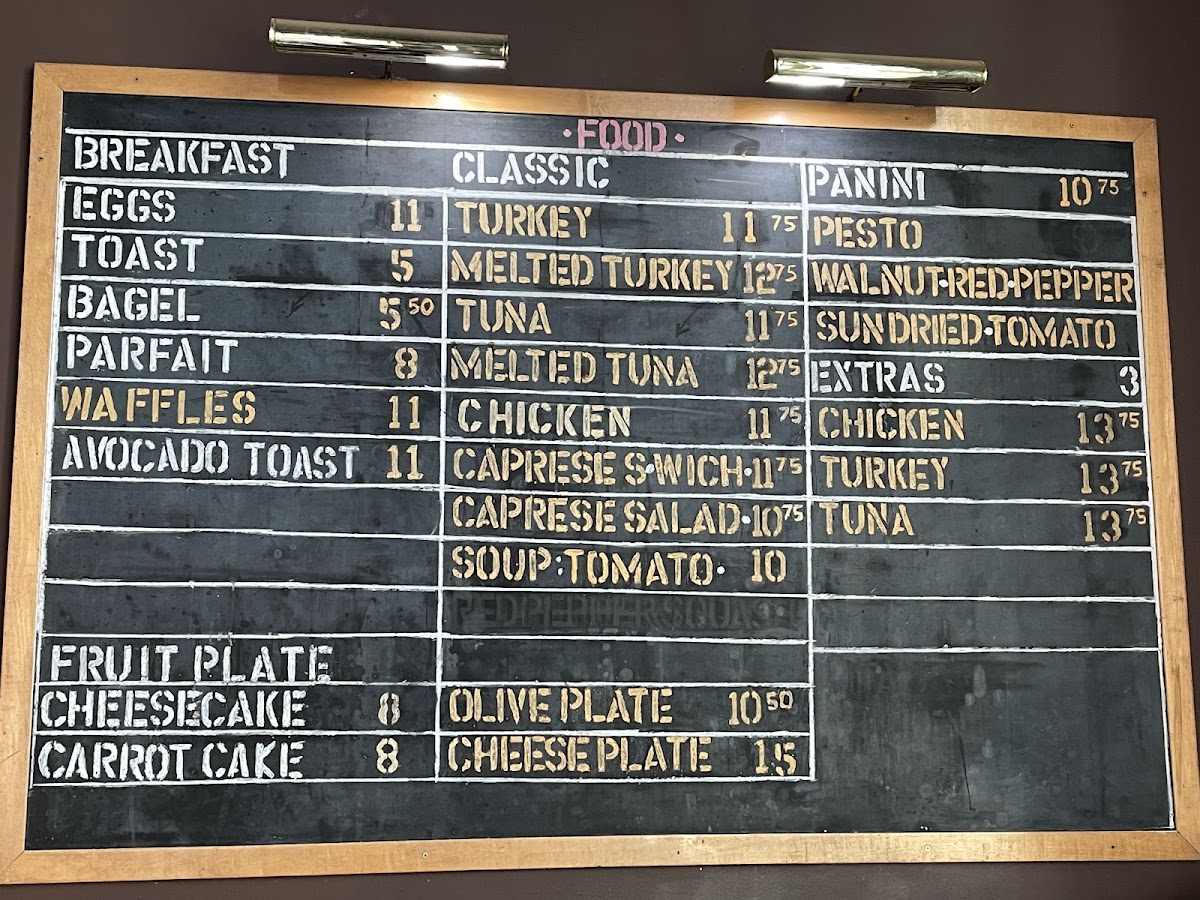 ·FOOD·
BREAKFAST
EGGS 11
TOAST 5
BAGEL 5 50
PARFAIT 8
WAFFLES 11
AVOCADO TOAST 11
FRUIT PLATE
CHEESECAKE 8
CARROT CAKE 8
CLASSIC
TURKEY 11 75
MELTED TURKEY 12 75
TUNA 11 75
MELTED TUNA 12 75
CHICKEN 11 75
CAPRESE S·WICH· 11 75
CAPRESE SALAD· 10 75
SOUP:TOMATO· 10
OLIVE PLATE 10 50
CHEESE PLATE 15
PANINI 10 75
PESTO
WALNUT·RED·PEPPER
SUNDRIED·TOMATO
EXTRAS 3
CHICKEN 13 75
TURKEY 13 75
TUNA 13 75